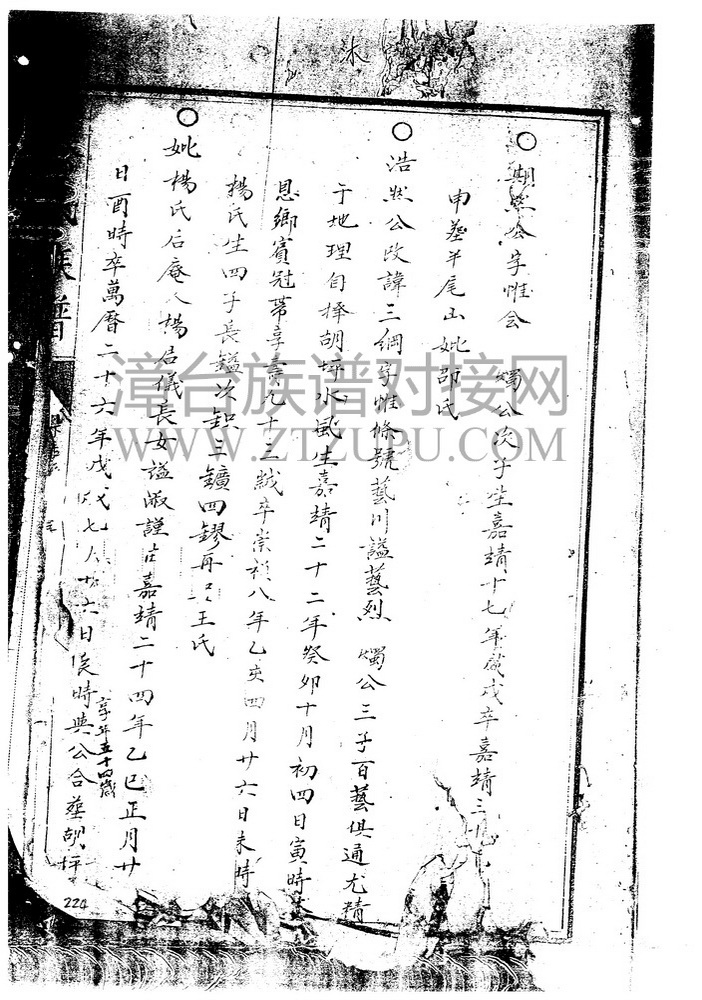 期然公字惟会 燭公次子生嘉靖十七年戊戌卒嘉靖三
申塟羊尾山妣邵氏
浩然公改諱三綱字惟條號藝川謚藝烈 燭公三子百藝俱通尤精
于地理自择胡坪水風生嘉靖二十二年癸卯十月初四日寅時
恩鄉賓冠帶享壽九十三歲卒崇禎八年乙亥四月廿六日未時
楊氏生四子長鎰次鋇三鑛四鏐再 王氏
妣楊氏后庵 楊居儀長女謚淑謹 嘉靖二十四年乙巳正月廿
日酉時卒萬曆二十六年戊戌七月廿六日 時與公合塟胡坪
享年五十四歲
族譜
224
漳台族谱对接网
WWW.ZTZUPU.COM